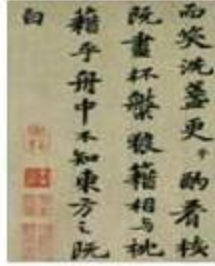 而笑洗盞更酌肴核
既盡杯槃狼籍相与枕
籍乎舟中不知東方之既
白